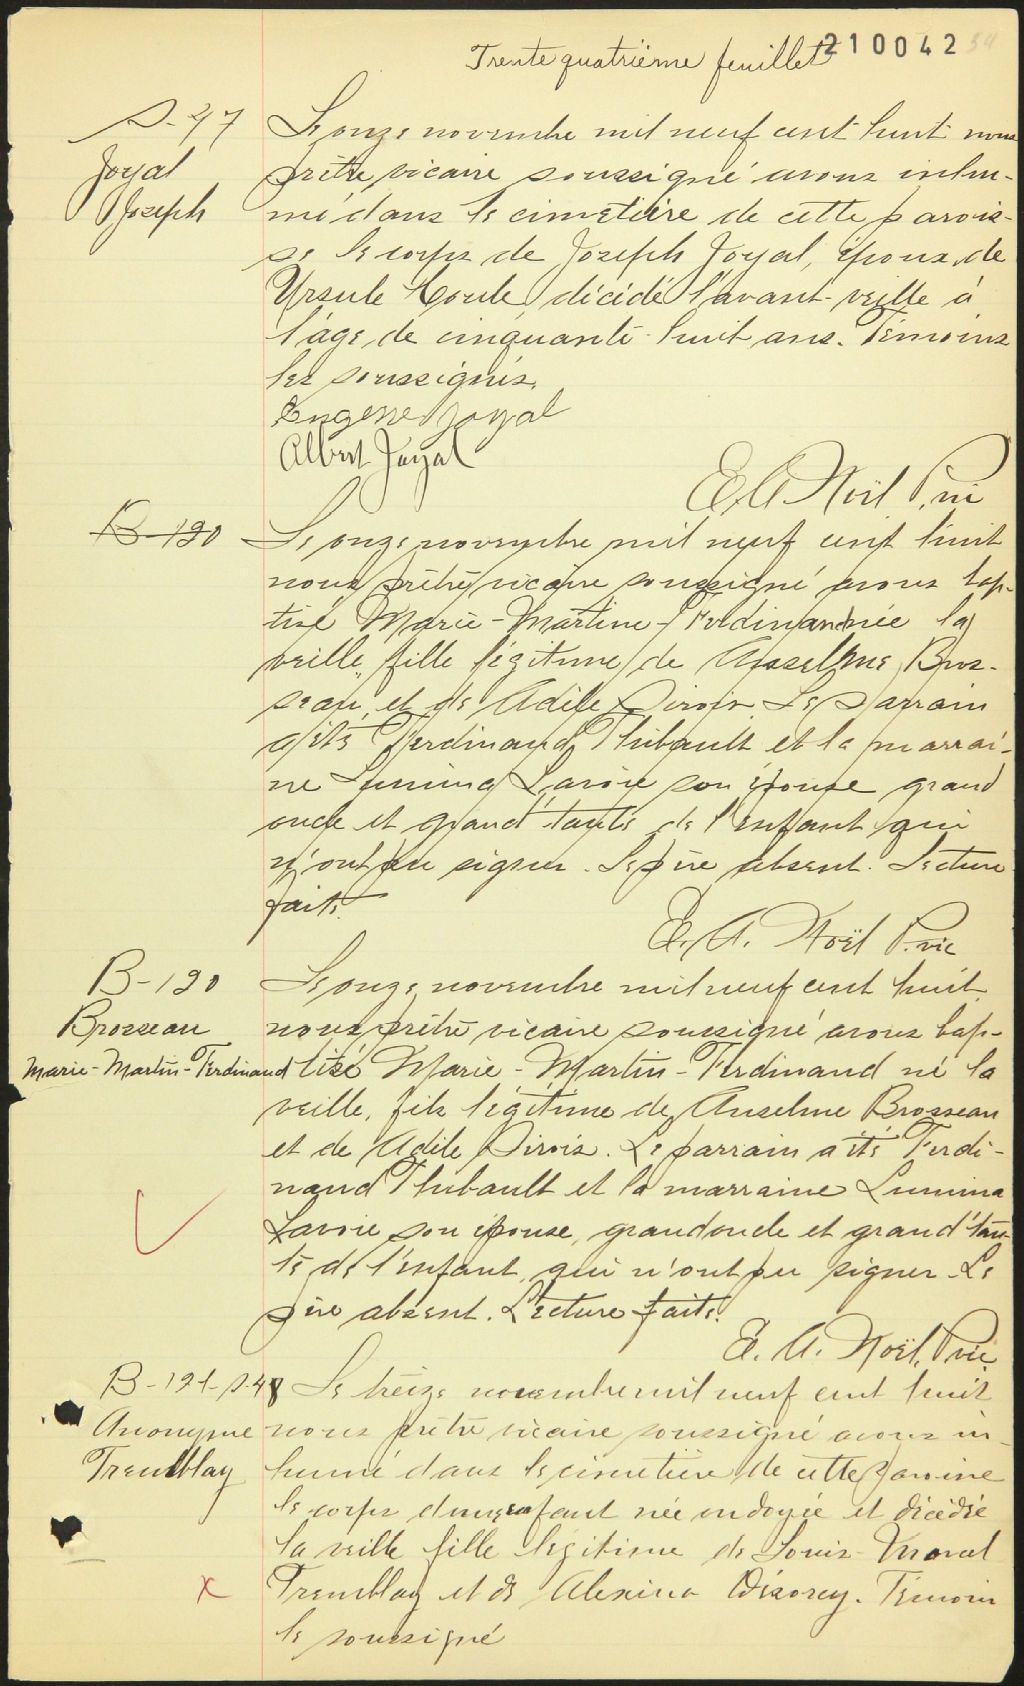 Trente quatrième feuillet 210042 34
S-47
Joyal
Joseph
Le onze novembre mil neuf cent huit nous
prêtre vicaire soussigné avons inhu-
mé dans le cimetière de cette parois-
se le corps de Joseph Joyal, époux de
Ursule Houle, décédé l'avant-veille à
l'âge de cinquante-huit ans. Témoins
les soussignés.
Eugène Joyal
Albert Joyal
E. A. Noël P. vic
B-120
Le onze novembre mil neuf cent huit
nous prêtre vicaire soussigné avons bap-
tisé Marie-Martine-Ferdinand née la
veille, fille légitime de Anselme Bros-
seau et de Adèle Sirois. Le parrain
a été Ferdinand Thibault et la marrai-
ne Lumina Lavoie son épouse grand
oncle et grand'tante de l'enfant qui
n'ont pu signer. Le père absent. Lecture
faite.
E. A. Noël P. vic
B-120
Brosseau
Marie-Martin-Ferdinand
Le onze novembre mil neuf cent huit
nous prêtre vicaire soussigné avons bap-
tisé Marie-Martin-Ferdinand né la
veille, fils légitime de Anselme Brosseau
et de Adèle Sirois. Le parrain a été Ferdi-
nand Thibault et la marraine Lumina
Lavoie son épouse, grand oncle et grand'tan-
te de l'enfant, qui n'ont pu signer. Le
père absent. Lecture faite.
E. A. Noël, P. vic.
B-121-S.48
Anonyme
Tremblay
Le treize novembre mil neuf cent huit
nous prêtre vicaire soussigné avons in-
humé dans le cimetière de cette paroisse
le corps d'une enfant née ondoyée et décédée
la veille fille légitime de Louis
Tremblay et de Alexina Désorcy. Témoin
le soussigné